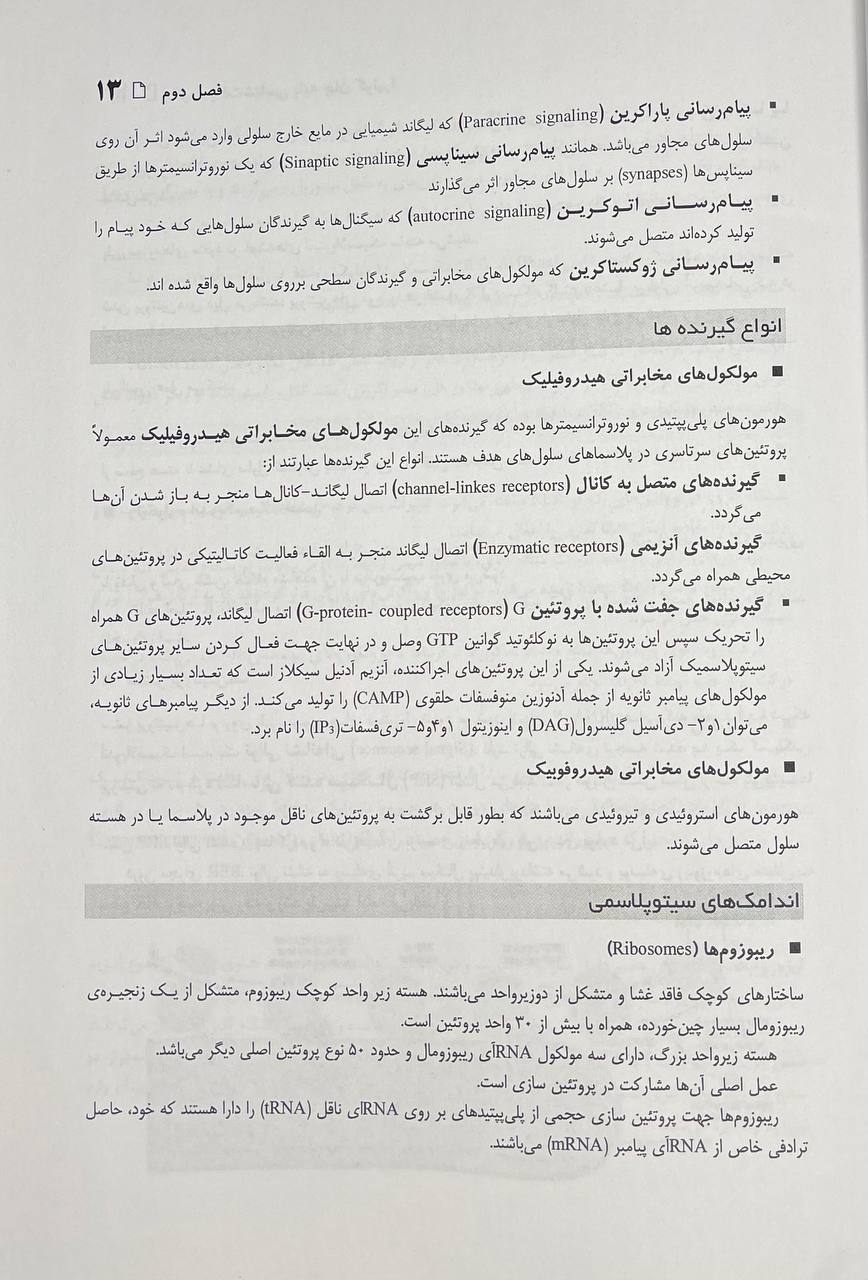 فصل دوم ۱۳
پیام‌رسانی پاراکرین (Paracrine signaling) که لیگاند شیمیایی در مایع خارج سلولی وارد می‌شود اثر آن روی
سلول‌های مجاور می‌باشد. همانند پیام‌رسانی سیناپسی (Sinaptic signaling) که یک نوروترانسیمترها از طریق
سیناپس‌ها (synapses) بر سلول‌های مجاور اثر می‌گذارند
پیام‌رسانی اتوکرین (autocrine signaling) که سیگنال‌ها به گیرندگان سلول‌هایی که خود پیام را
تولید کرده‌اند متصل می‌شوند.
پیام‌رسانی ژوکستاکرین که مولکول‌های مخابراتی و گیرندگان سطحی برروی سلول‌ها واقع شده اند.
انواع گیرنده ها
مولکول‌های مخابراتی هیدروفیلیک
هورمون‌های پلی‌پپتیدی و نوروترانسیمترها بوده که گیرنده‌های این مولکول‌های مخابراتی هیدروفیلیک معمولاً
پروتئین‌های سرتاسری در پلاسماهای سلول‌های هدف هستند. انواع این گیرنده‌ها عبارتند از:
گیرنده‌های متصل به کانال (channel-linkes receptors) اتصال لیگاند-کانال‌ها منجر به باز شدن آن‌ها
می‌گردد.
گیرنده‌های آنزیمی (Enzymatic receptors) اتصال لیگاند منجر به القاء فعالیت کاتالیتیکی در پروتئین‌های
محیطی همراه می‌گردد.
گیرنده‌های جفت شده با پروتئین G (G-protein- coupled receptors) اتصال لیگاند، پروتئین‌های G همراه
را تحریک سپس این پروتئین‌ها به نوکلئوتید گوانین GTP وصل و در نهایت جهت فعال کردن سایر پروتئین‌های
سیتوپلاسمیک آزاد می‌شوند. یکی از این پروتئین‌های اجراکننده، آنزیم آدنیل سیکلاز است که تعداد بسیار زیادی از
مولکول‌های پیامبر ثانویه از جمله آدنوزین منوفسفات حلقوی (CAMP) را تولید می‌کند. از دیگر پیامبرهای ثانویه،
می‌توان ۱و۲- دی‌آسیل گلیسرول(DAG) و اینوزیتول ۱و۴و۵- تری‌فسفات(IP3) را نام برد.
مولکول‌های مخابراتی هیدروفوبیک
هورمون‌های استروئیدی و تیروئیدی می‌باشند که بطور قابل برگشت به پروتئین‌های ناقل موجود در پلاسما یا در هسته
سلول متصل می‌شوند.
اندامک‌های سیتوپلاسمی
ریبوزوم‌ها (Ribosomes)
ساختارهای کوچک فاقد غشا و متشکل از دوزیرواحد می‌باشند. هسته زیر واحد کوچک ریبوزوم، متشکل از یک زنجیره‌ی
ریبوزومال بسیار چین‌خورده، همراه با بیش از ۳۰ واحد پروتئین است.
هسته زیرواحد بزرگ، دارای سه مولکول RNAآی ریبوزومال و حدود ۵۰ نوع پروتئین اصلی دیگر می‌باشد.
عمل اصلی آن‌ها مشارکت در پروتئین سازی است.
ریبوزوم‌ها جهت پروتئین سازی حجمی از پلی‌پپتیدهای بر روی RNAآی ناقل (tRNA) را دارا هستند که خود، حاصل
ترادفی خاص از RNAآی پیامبر (mRNA) می‌باشند.